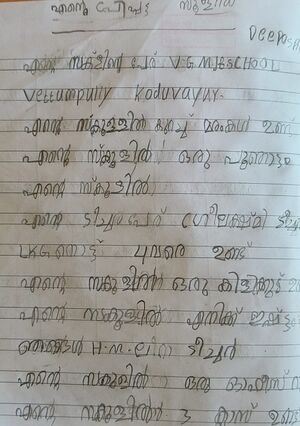 എന്റെ പ്രിപ്പട്ട സ്കൂൾ
എന്റെ സ്കൂളിന്റെ പേര് V.G.M.J.B.SCHOOL
Vettumpully Koduvayur.
എന്റെ സ്കൂളിൽ കുറച്ച് മരംങ്കൾ ഉണ്ട്
എന്റെ സ്കൂളിൽ ഒരു പൂന്തോട്ടം
എന്റെ സ്കൂളിൽ
എന്റെ ടീച്ചറുടെ പേര് ശ്രീലക്ഷ്മി ടീച്ച
LKG തൊട്ട് 4വരെ ഉണ്ട്
എന്റെ സ്കൂളിൽ ഒരു കിളിക്കൂട്
എന്റെ സ്കൂളിൽ എനിക് ഇഷ്ട
ഞങ്ങൾ H.M. ലിത ടീച്ചർ
എന്റെ സ്കൂളിൽ ഒരു ഓഫീസ്
എന്റെ സ്കൂളിൽ 3 ക്ലാസ് ഉണ്ട്